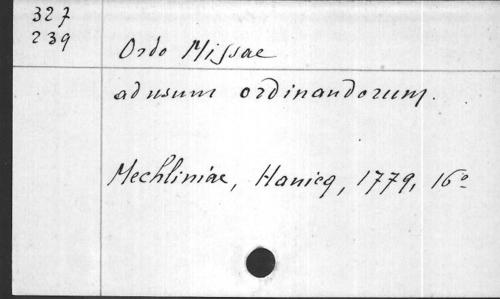 327
239
Ordo Missae
ad usum ordinandorum.
Mechliniae, Hanicq, 1779, 16°